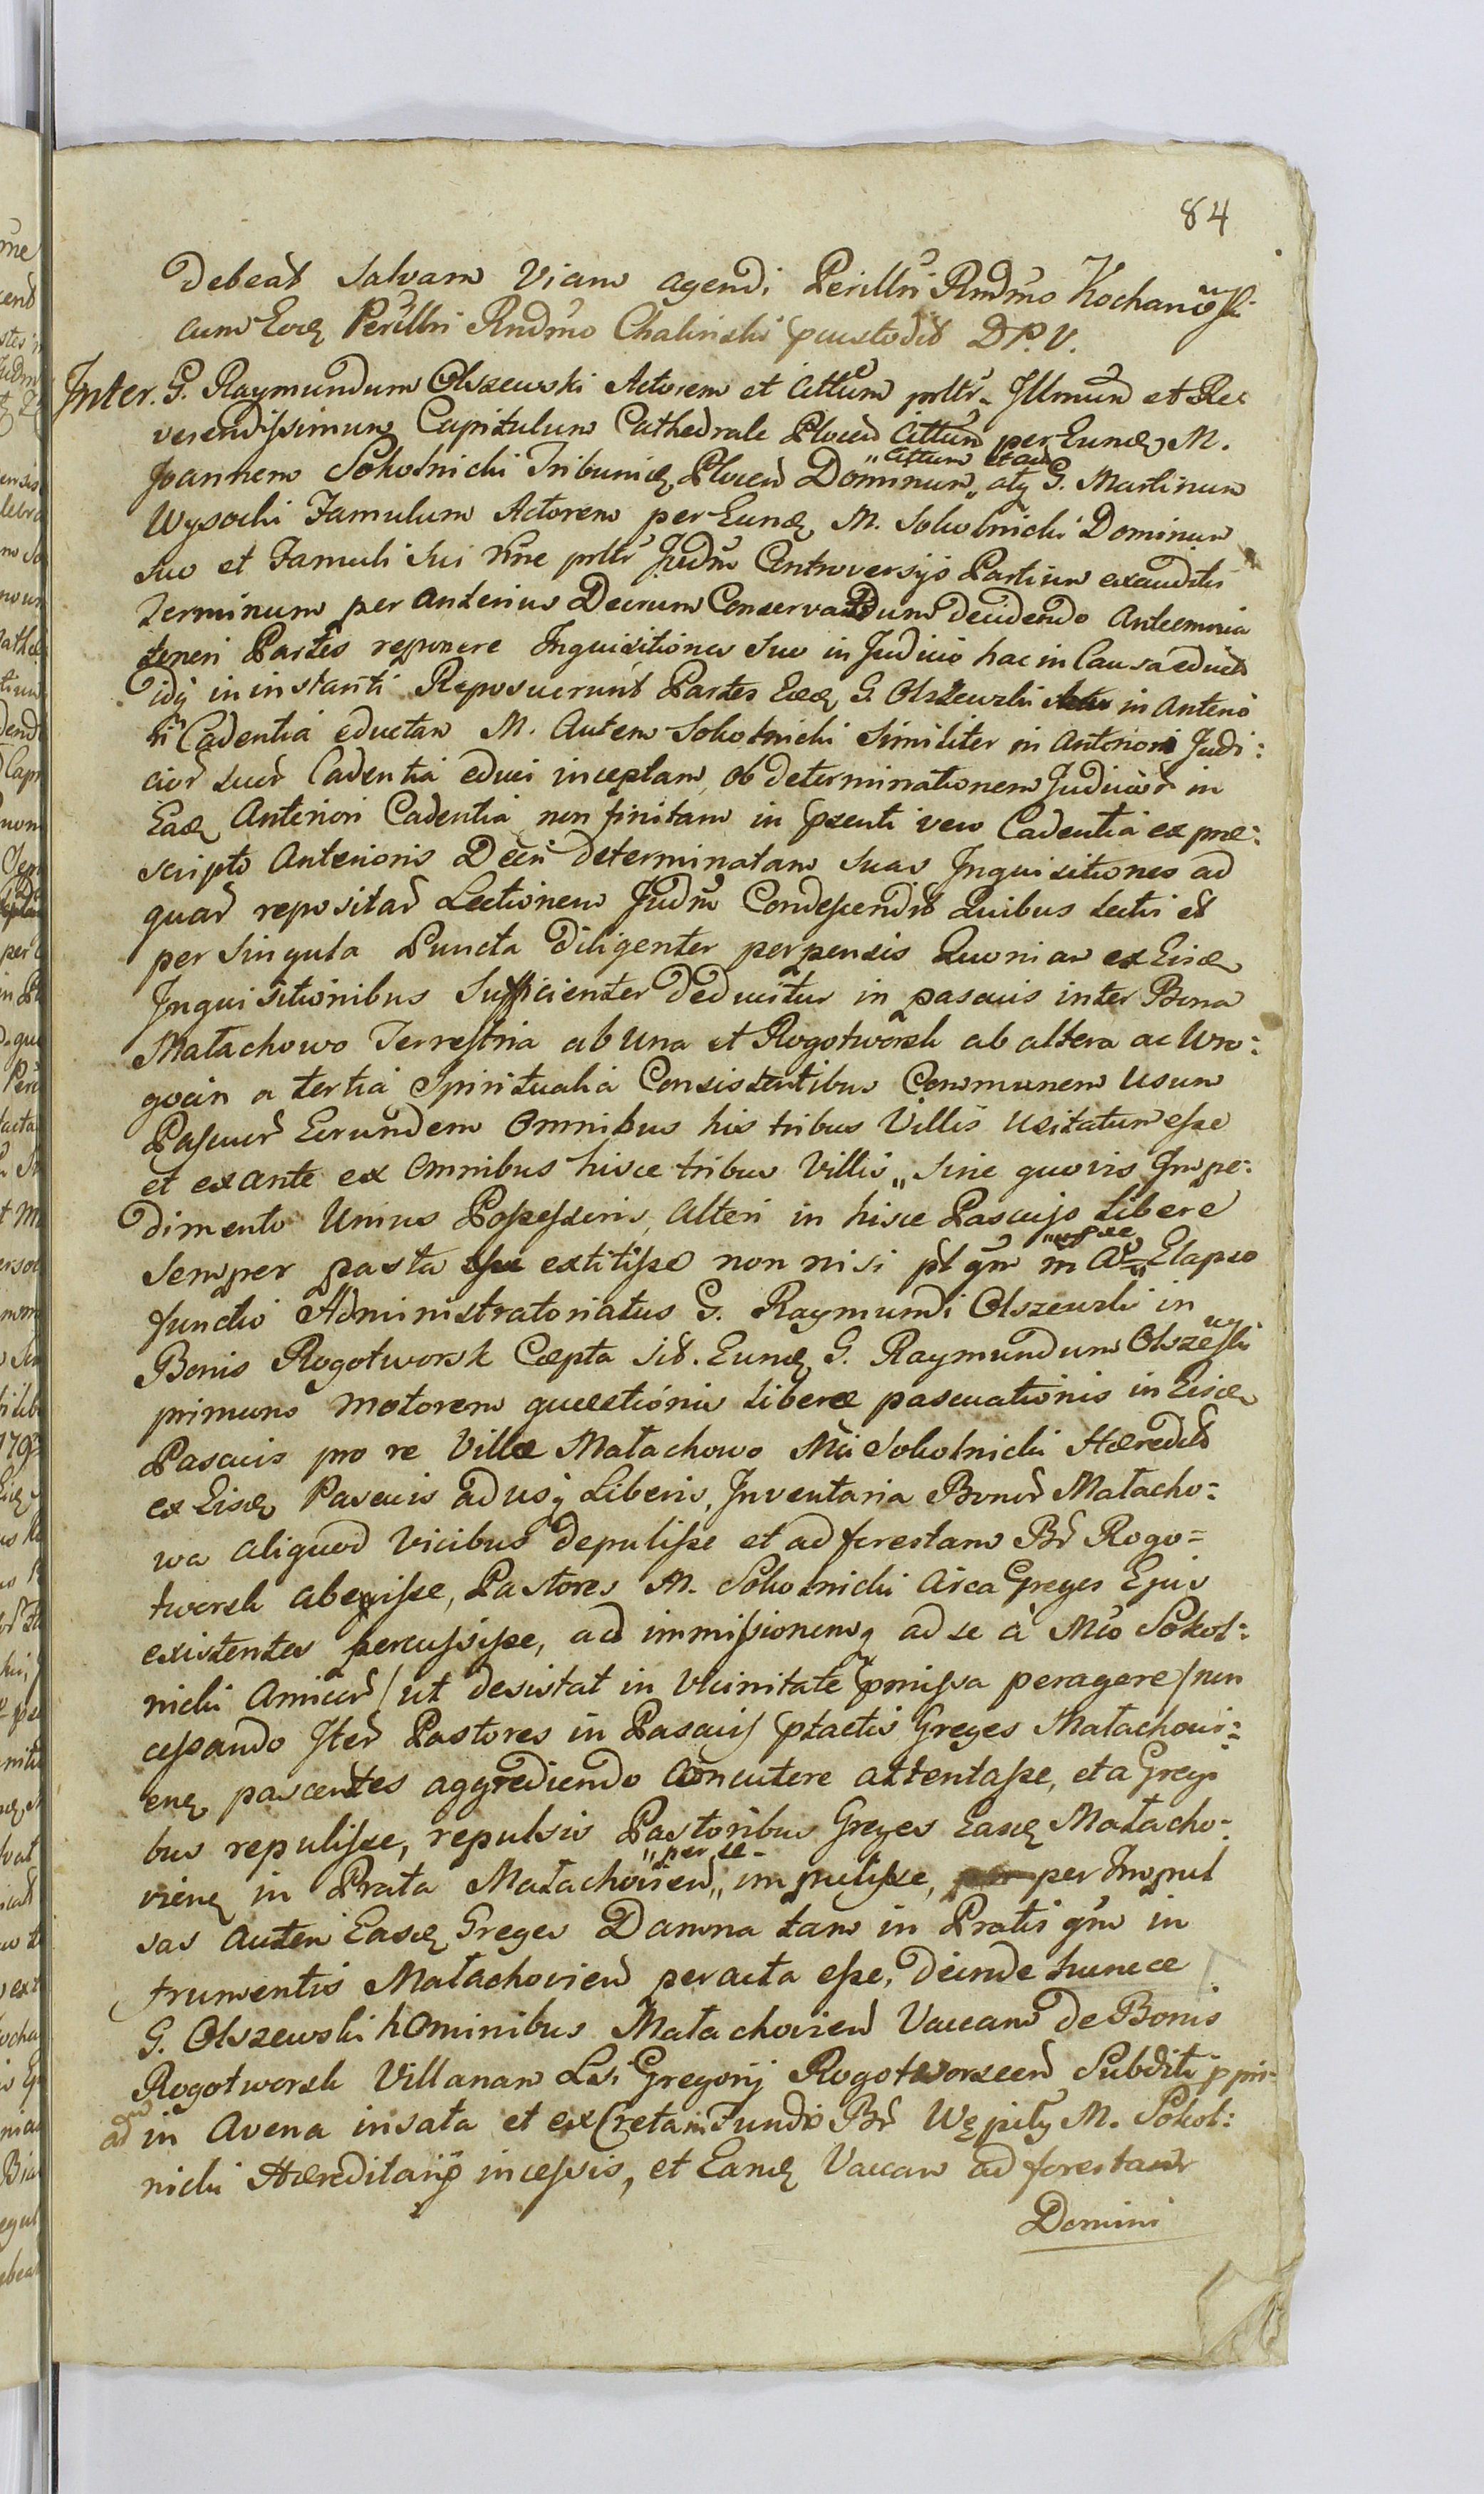 84
Debeat Salvam Viam agendi Perillri Rndmo Kochanowski
cum Eodq Perillri Rndmo Chalinski pcustodit D.P.V.
Inter. G. Raymundum Olszewski Actorem et Cittum prltr. Illmum et Re
verendissimum Capitulum Cathedrale Plocen Cittum per Eundq M.
Joannem Sokolnicki Tribunidq Plocen Dominum „Cittum et ad„ atq G. Martinum
Wysocki Famulum Actorem per Eundq M. Sokolnicki Dominum
suo et Famuli sui nne prltr Judm Controversijs Partium exauditis
Terminum per anterius Decrum Conservandum decidendo Anteomnia
teneri Partes reponere Inquisitiones suo in Judicio hac in Causa educt
idq in instanti Reposuerunt Partes G. Olszewski in anterio
ri Cadentia eductam M. Autem Sokolnicki Similiter in Anteriori Judi:
cior suor Cadentia educi inceptam, ob determinationem Judicior in
Eadq Anteriori Cadentia non finitam in psenti vero Cadentia ex præ:
scripto Anterioris Decri determinatam suas Inquisitiones ad
quar repositar Lectionem Judm Condescendit Quibus Lectis et
per Singula Puncta diligenter perpensis Quoniam ex Eisdq
Inquisitionibus Sufficienter deducitur in pascuis inter Bona
Małachowo Terrestria ab una et Rogotworsk ab altera ac Wro:
gocin a tertia Spiritualia Consistentibus Communem Usum
Pascuor Eorundem Omnibus his tribus Villis Usitatum esse
et exante ex Omnibus hisce tribus Villis „ sine quovis Impe:
dimento Unius Possessoris, Alteri in hisce Pascuis Libere
Semper pasta extitisse non nisi pt qm in Elapso
functio Administratoriatus G. Raymundi Olszewski in
Bonis Rogotworsk Cæpta sit. Eundq G. Raymundum Olszewski
primum Motorem quæstionis Liberæ pascuationis in Eisdq
Pascuis pro re Villæ Małachowo Mci Sokolnicki Hæredit
ex Eisdq Pascuis adusq Liberis, Inventaria Bonor Małacho:
wa aliquod Vicibus depulisse et ad forestam Br Rogo=
tworsk abegisse, Pastores M. Sokolnicki circa Greges Ejus
existentes percussisse, ad immissionemq ad se à Mco Sokol:
nicki Amicor / ut desistat in Vicinitate pmissa peragere / non
cessando Iter Pastores in Pascuis ptactis Greges Małachovi:
enq pascentes aggrediendo Concutere attentasse, et a Gregi
bus repulisse, repulsis Pastoribus Greges Easdq Małacho:
vienq in Prata Małachovien „per se„ impulisse, per Impul
sas autem Easdq Greges Damna tam in Pratis qm in
frumentis Małachovien peracta esse, deinde hunce
G. Olszewski hominibus Małachovien Vaccam de Bonis
Rogotworsk Villanam Lsi Gregorij Rogotworscen Subditi ppri-
am in Avena insata et excretam Fundo Br Wępiły M. Sokol:
nicki Hæreditarijs incessis, et Eandq Vaccam ad forestam
Domini